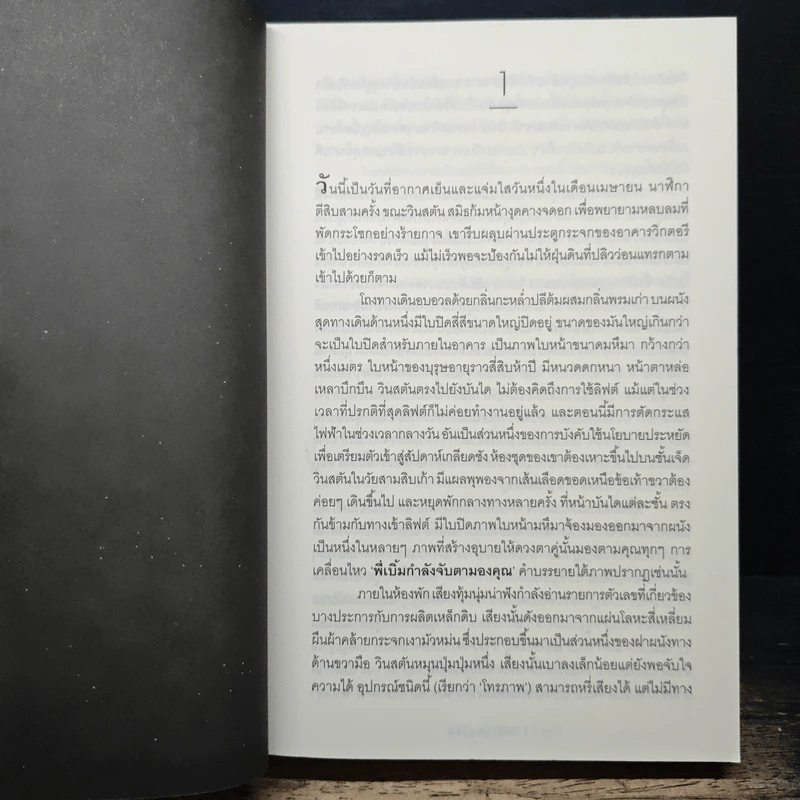 1
วันนี้เป็นวันที่อากาศเย็นและแจ่มใสวันหนึ่งในเดือนเมษายน นาฬิกา
ตีสิบสามครั้ง ขณะวินสตัน สมิธก้มหน้างุดคางจดอก เพื่อพยายามหลบลมที่
พัดกระโชกอย่างร้ายกาจ เขารีบผลุบผ่านประตูกระจกของอาคารวิกตอรี
เข้าไปอย่างรวดเร็ว แม้ไม่เร็วพอจะป้องกันไม่ให้ฝุ่นดินที่ปลิวว่อนแทรกตาม
เข้าไปด้วยก็ตาม
โถงทางเดินอบอวลด้วยกลิ่นกะหล่ำปลีต้มผสมกลิ่นพรมเก่า บนผนัง
สุดทางเดินด้านหนึ่งมีใบปิดสี่สีขนาดใหญ่ปิดอยู่ ขนาดของมันใหญ่เกินกว่า
จะเป็นใบปิดสำหรับภายในอาคาร เป็นภาพใบหน้าขนาดมหึมา กว้างกว่า
หนึ่งเมตร ใบหน้าของบุรุษอายุราวสี่สิบห้าปี มีหนวดดกหนา หน้าตาหล่อ
เหลาบึกบึน วินสตันตรงไปยังบันได ไม่ต้องคิดถึงการใช้ลิฟต์ แม้แต่ในช่วง
เวลาที่ปรกติที่สุดลิฟต์ก็ไม่ค่อยทำงานอยู่แล้ว และตอนนี้มีการตัดกระแส
ไฟฟ้าในช่วงเวลากลางวัน อันเป็นส่วนหนึ่งของการบังคับใช้นโยบายประหยัด
เพื่อเตรียมตัวเข้าสู่สัปดาห์เกลียดชัง ห้องชุดของเขาต้องเหาะขึ้นไปบนชั้นเจ็ด
วินสตันในวัยสามสิบเก้า มีแผลพุพองจากเส้นเลือดขอดเหนือข้อเท้าขวาต้อง
ค่อยๆ เดินขึ้นไป และหยุดพักกลางทางหลายครั้ง ที่หน้าบันไดแต่ละชั้น ตรง
กันข้ามกับทางเข้าลิฟต์ มีใบปิดภาพใบหน้ามหึมาจ้องมองออกมาจากผนัง
เป็นหนึ่งในหลายๆ ภาพที่สร้างอุบายให้ดวงตาคู่นั้นมองตามคุณทุกๆ การ
เคลื่อนไหว 'พี่เบิ้มกำลังจับตามองคุณ' คำบรรยายใต้ภาพปรากฏเช่นนั้น
ภายในห้องพัก เสียงทุ้มนุ่มน่าฟังกำลังอ่านรายการตัวเลขที่เกี่ยวข้อง
บางประการกับการผลิตเหล็กดิบ เสียงนั้นดังออกมาจากแผ่นโลหะสี่เหลี่ยม
ผืนผ้าคล้ายกระจกเงามัวหม่น ซึ่งประกอบขึ้นมาเป็นส่วนหนึ่งของฝาผนังทาง
ด้านขวามือ วินสตันหมุนปุ่มปุ่มหนึ่ง เสียงนั้นเบาลงเล็กน้อยแต่ยังพอจับใจ
ความได้ อุปกรณ์ชนิดนี้ (เรียกว่า 'โทรภาพ') สามารถหรี่เสียงได้ แต่ไม่มีทาง